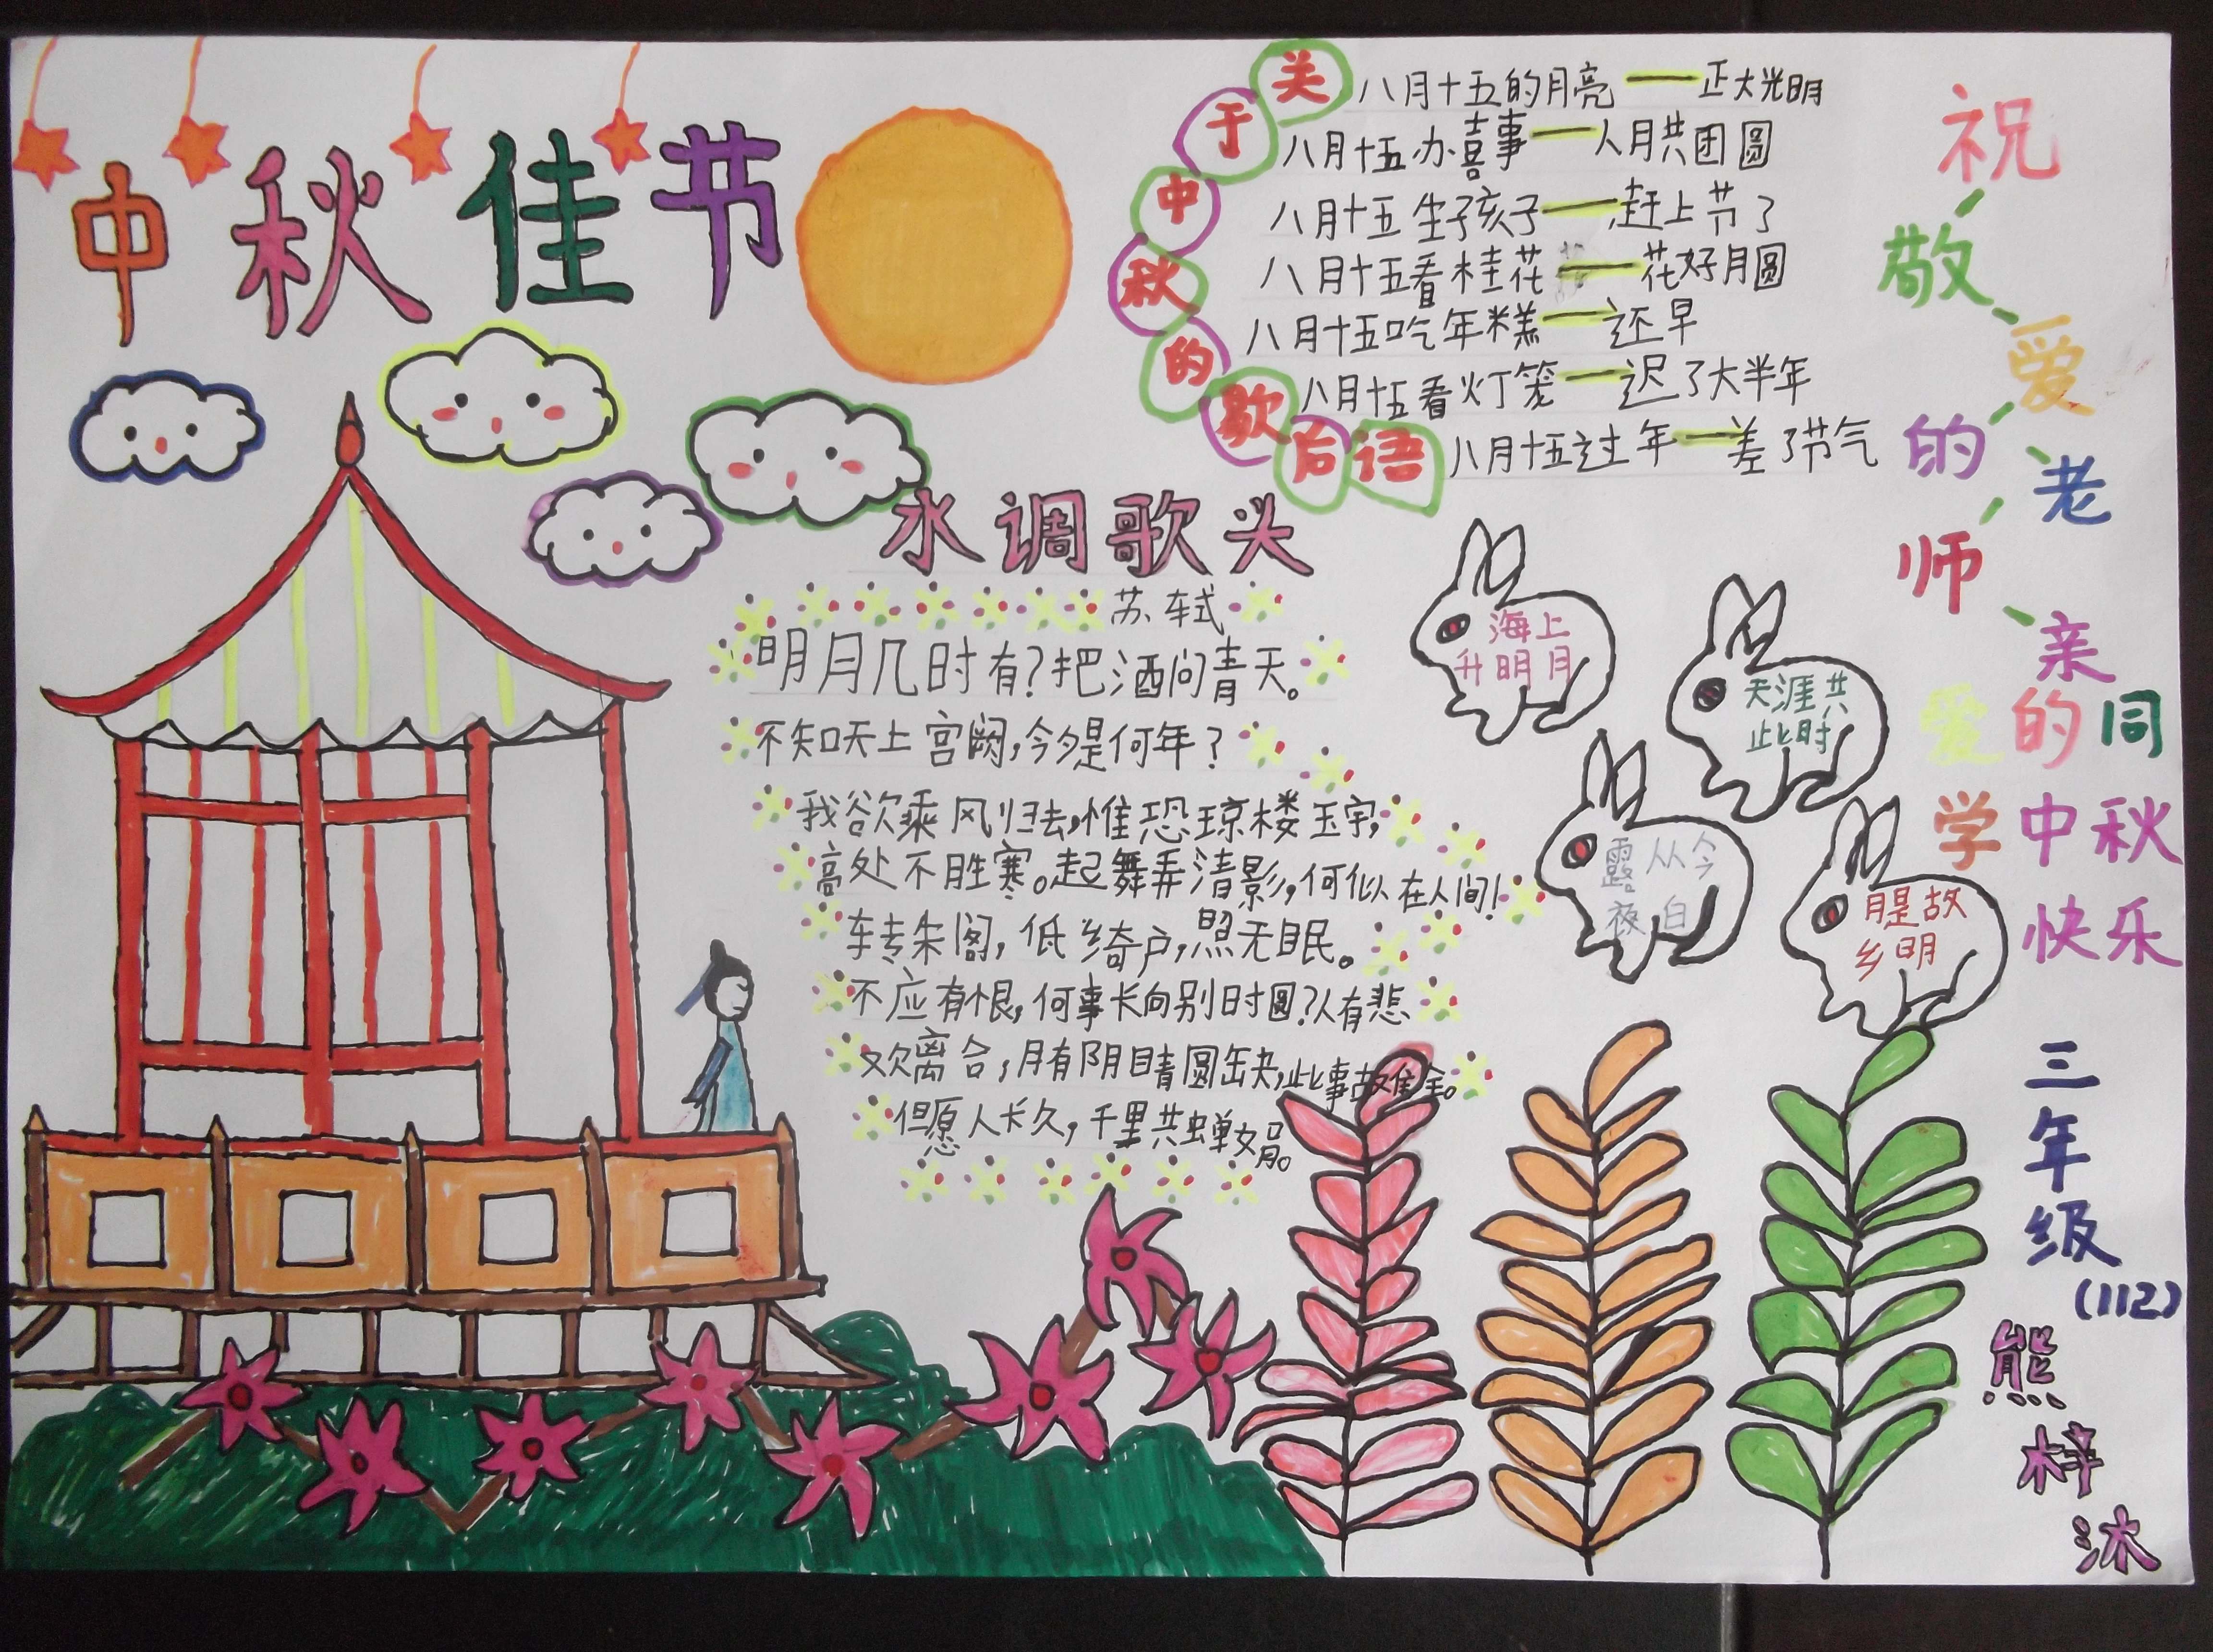 中秋佳节
关于中秋的歇后语
八月十五的月亮——正大光明
八月十五办喜事——人月共团圆
八月十五生孩子——赶上节了
八月十五看桂花——花好月圆
八月十五吃年糕——还早
八月十五看灯笼——迟了大半年
八月十五过年——差了节气
水调歌头
苏轼
明月几时有?把酒问青天。
不知天上宫阙,今夕是何年?
我欲乘风归去,惟恐琼楼玉宇,
高处不胜寒。起舞弄清影,何似在人间!
转朱阁,低绮户,照无眠。
不应有恨,何事长向别时圆?人有悲
欢离合,月有阴晴圆缺,此事故难全。
但愿人长久,千里共蝉娟。
海上
升明月
天涯共
此时
露从今
夜白
月是故
乡明
祝敬爱的老师亲
爱的同
学中秋
快乐
三年级
(112)
熊梓沐